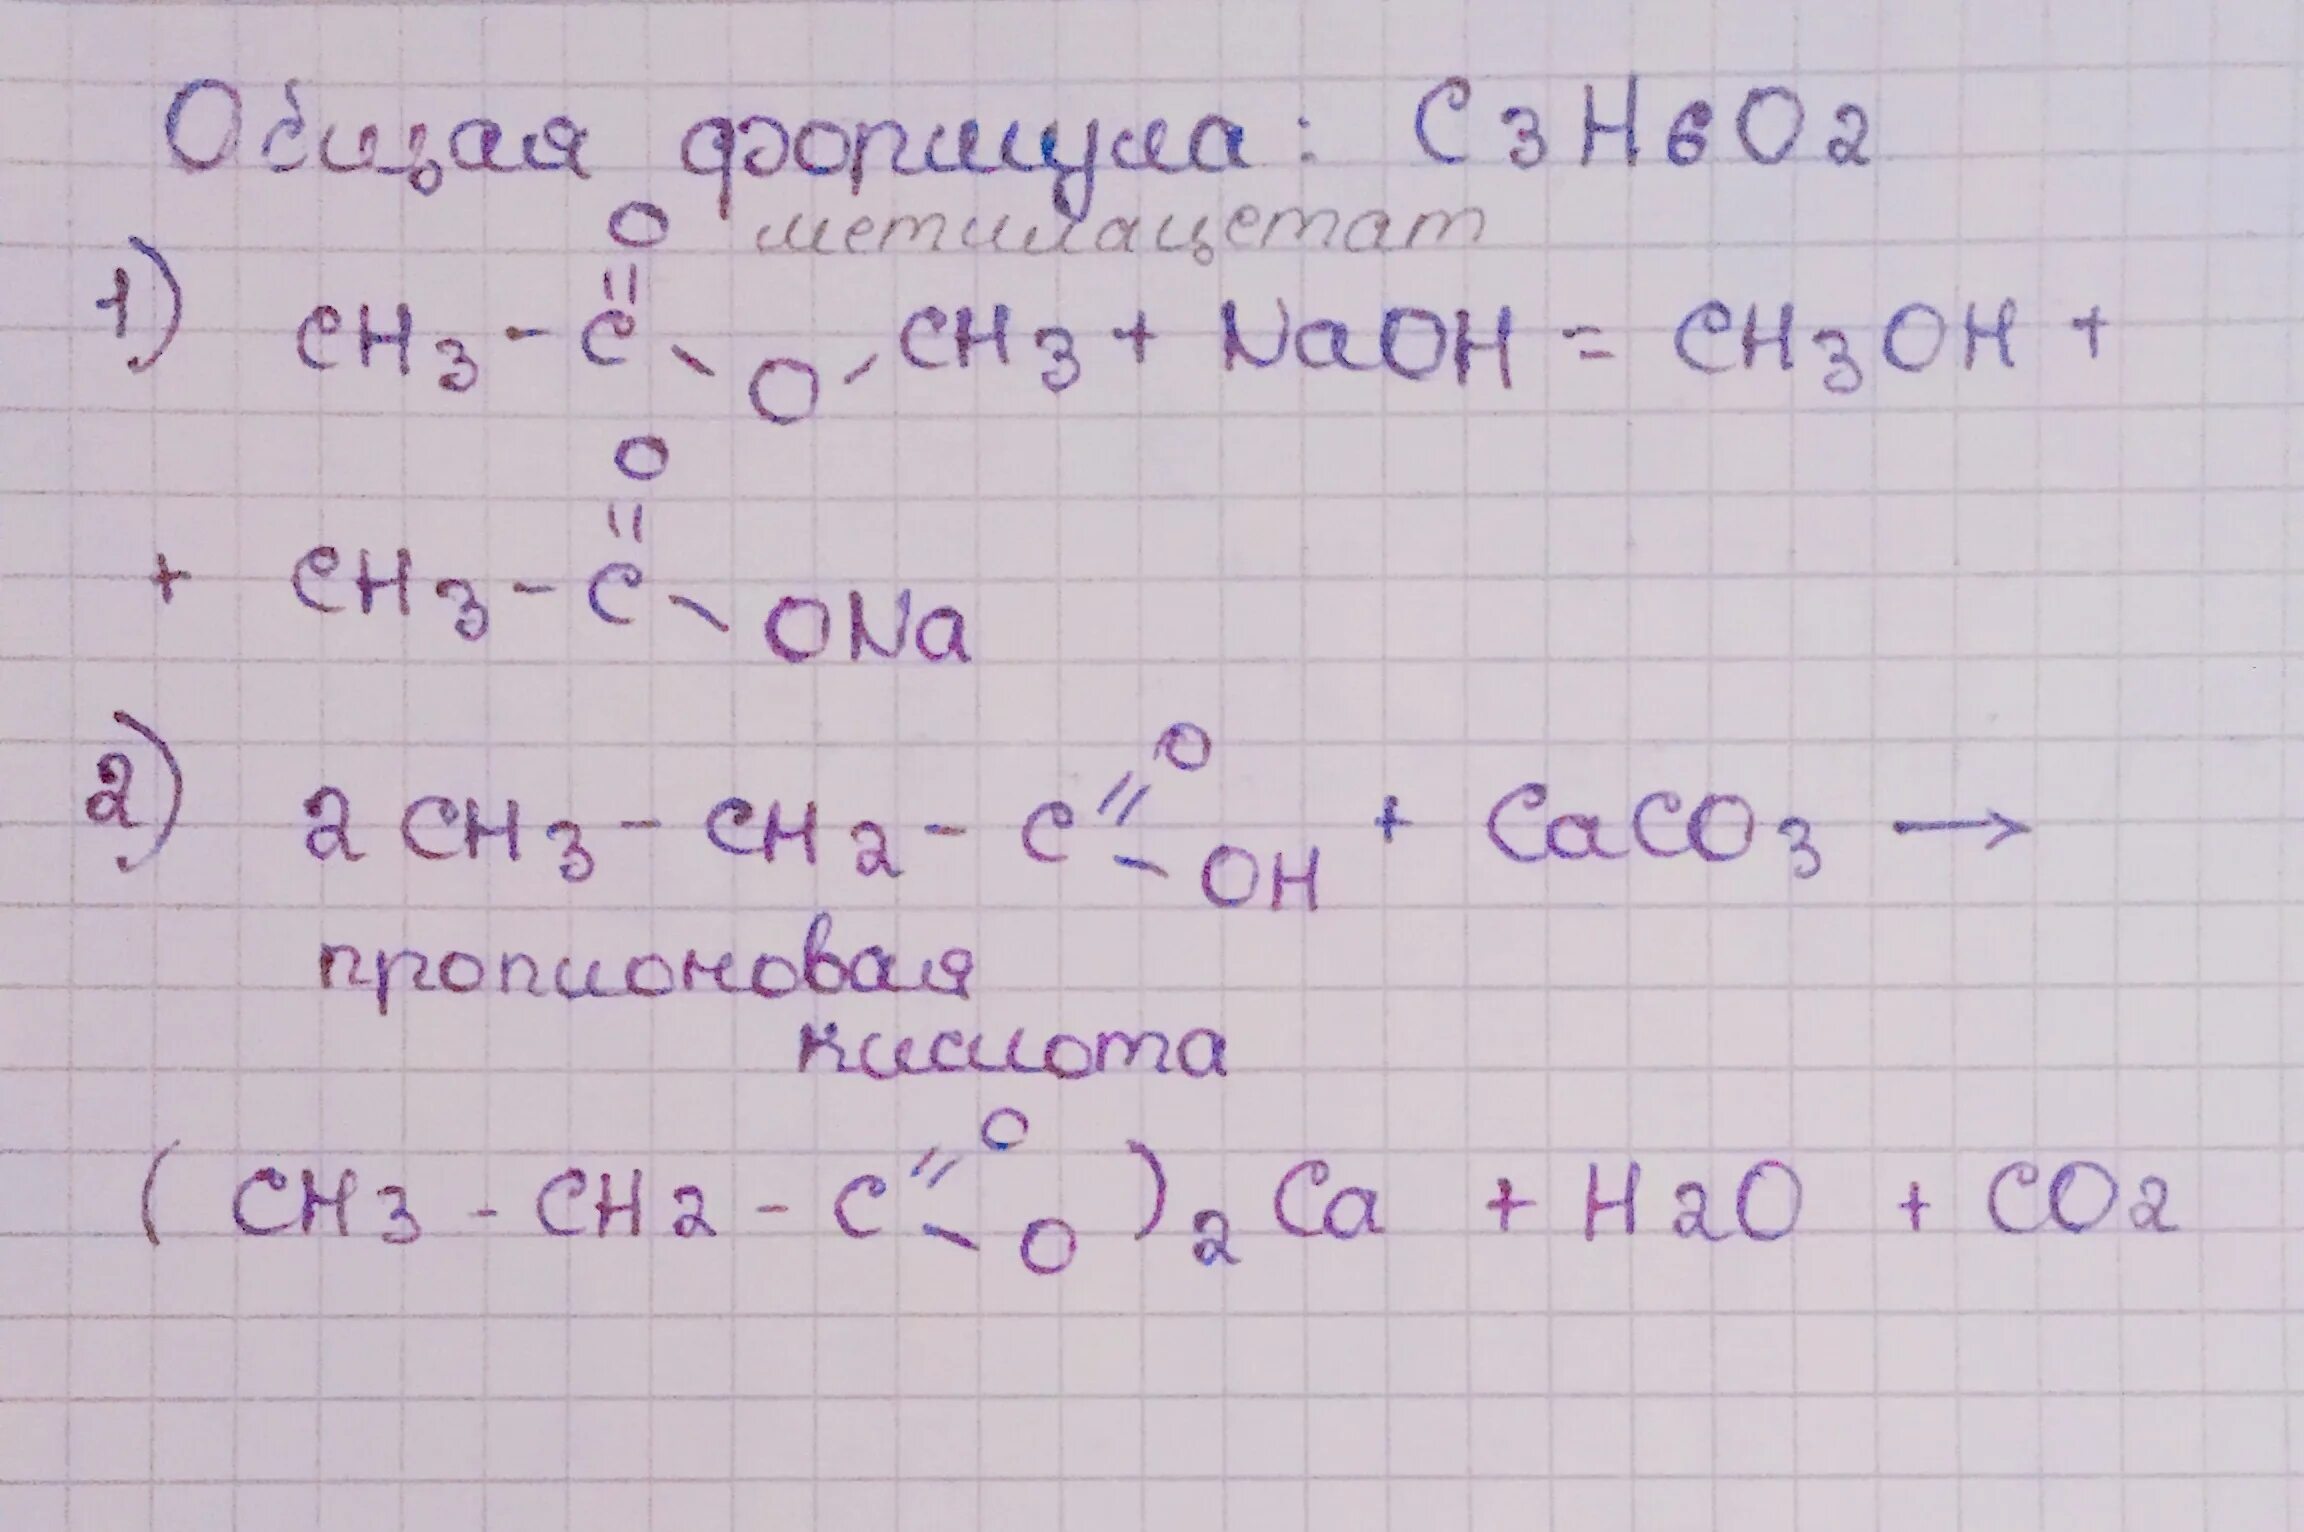 Общая формула: C3H6O2
метилацетат
O
1) CH3 - C - O - CH3 + NaOH = CH3OH +
O
+ CH3 - C - ONa
O
2) 2 CH3 - CH2 - C - OH + CaCO3 →
пропионовая
кислота
O
( CH3 - CH2 - C - O )2 Ca + H2O + CO2